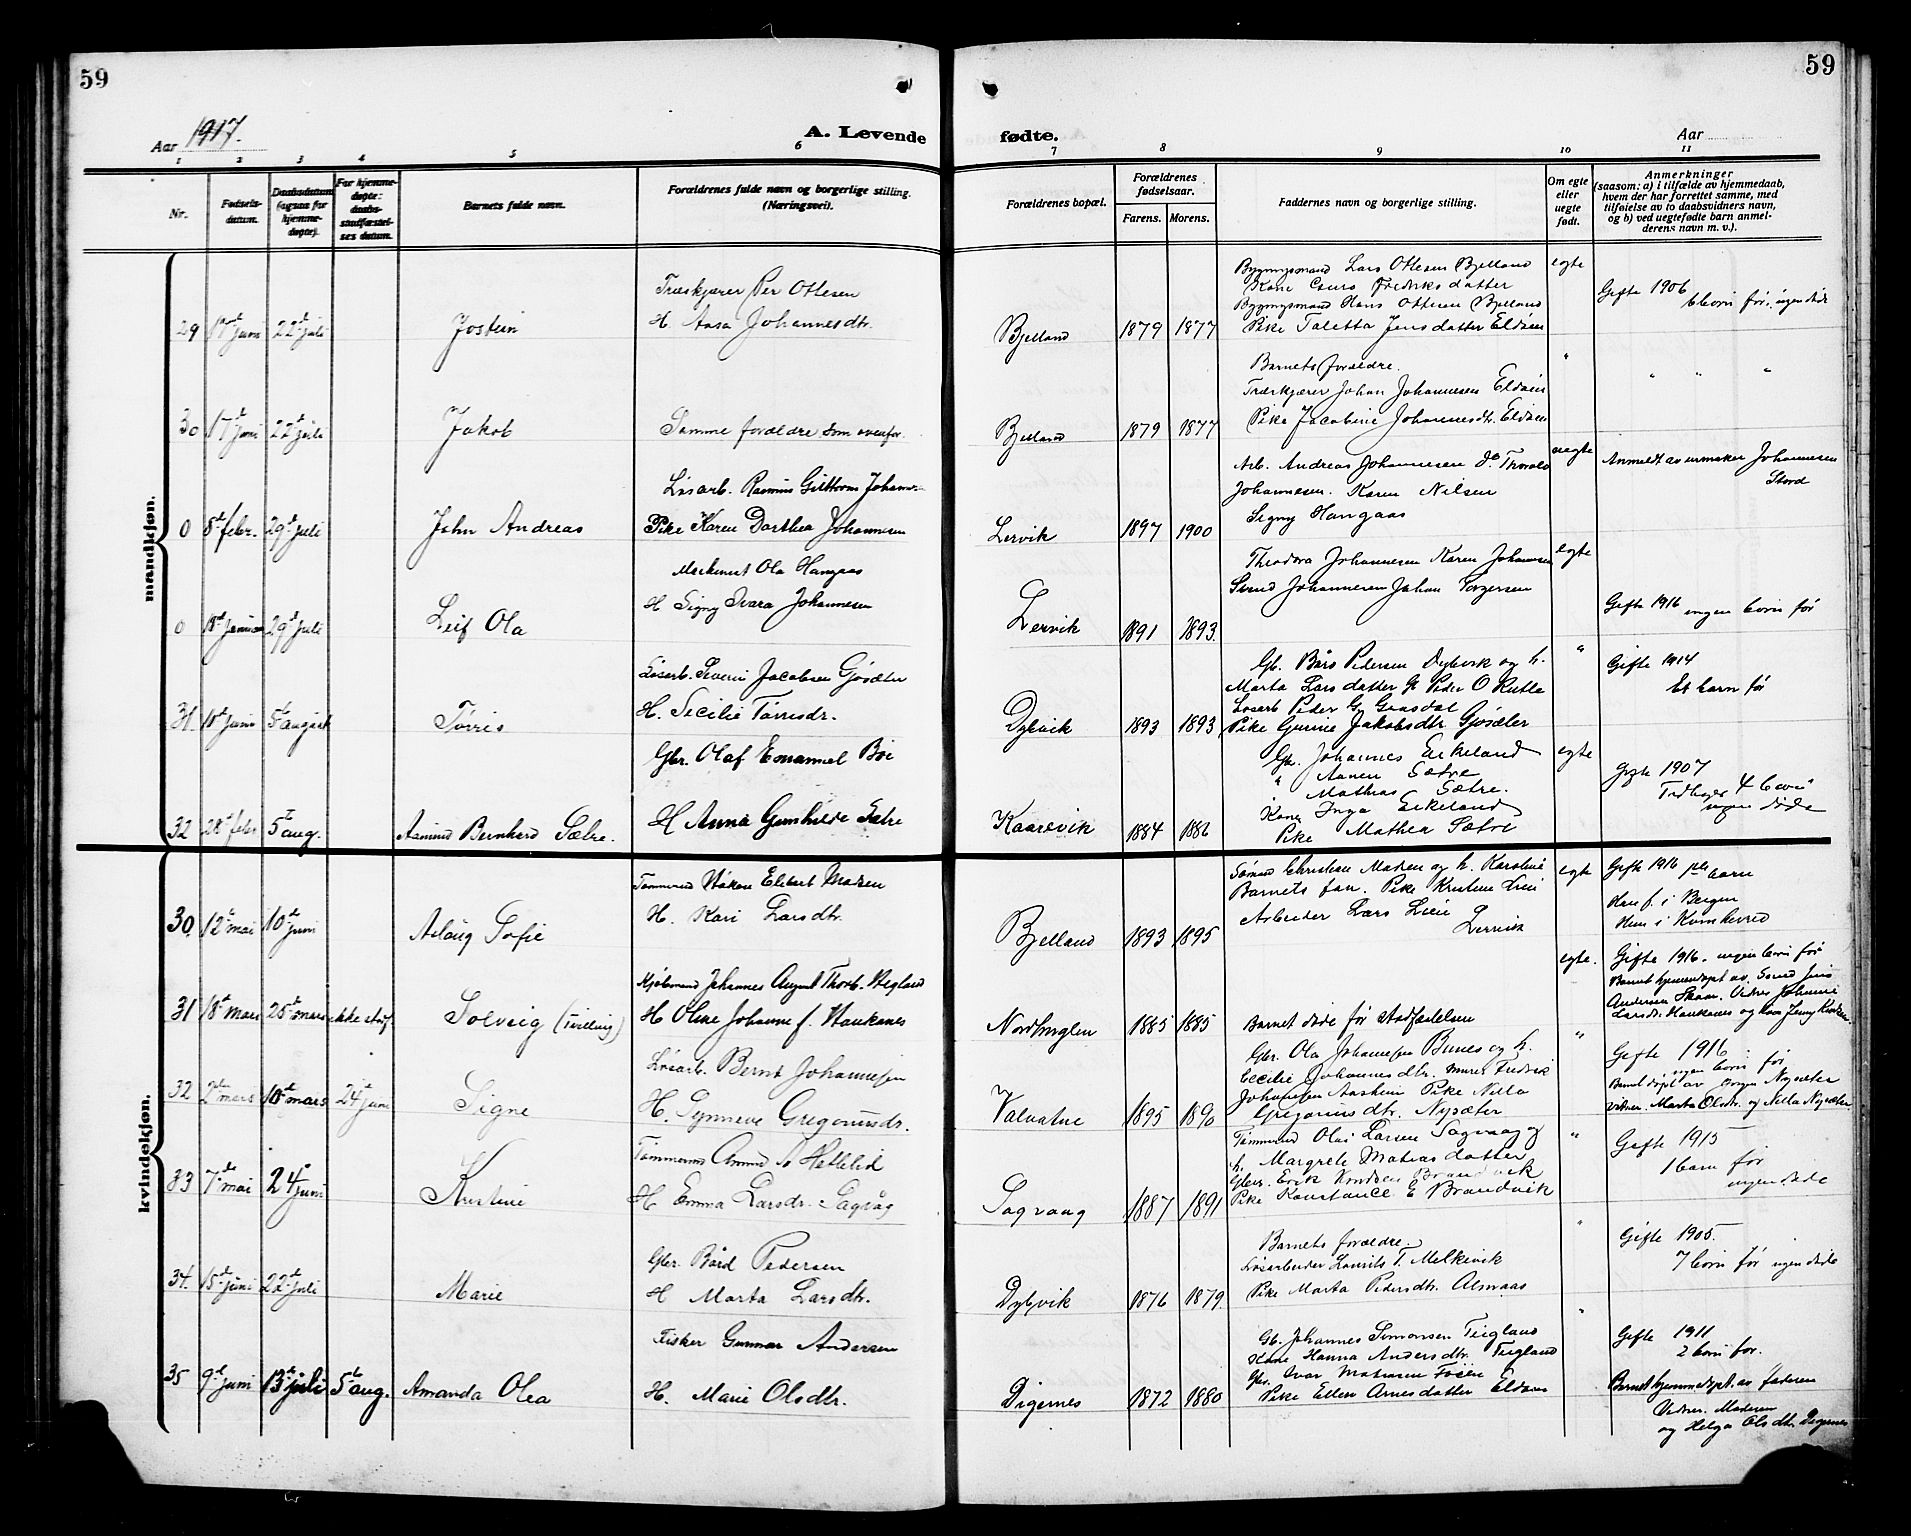 59
59
Aar 1917.
A. Levende
fødte.
Aar
1 2 3 4 5 6 7 8 9 10 11
Nr.
Fødsels-
datum.
Daabsdatum
(ogsaa for
hjemme-
døpte).
For hjemme-
døpte:
daabs-
stadfæstel-
ses datum.
Barnets fulde navn.
Forældrenes fulde navn og borgerlige stilling.
(Næringsvei).
Forældrenes bopæl.
Forældrenes
fødselsaar.
Farens. Morens.
Faddernes navn og borgerlige stilling.
Om egte
eller
uegte
født.
Anmerkninger
(saasom: a) i tilfælde av hjemmedaab,
hvem der har forrettet samme, med
tilføielse av to daabsvidners navn,
og b) ved uegtefødte barn anmel-
derens navn m. v.).
mandkjøn.
29 17de juni 22de juli
Jostein
Træskjærer Per Ottesen
H. Aasa Johannesdtr.
Bjelland 1879 1877
Bygningsmand Lars Ottesen Bjelland
Kone Fredriksdatter
Bygningsmand Hans Ottesen Bjelland
Pike Taletta Jensdatter Eldøen
egte
Gifte 1906
6 born før, ingen døde
30 17de juni 22de juli
Jakob
Samme forældre som ovenfor
Bjelland 1879 1877
Barnets forældre.
Træskjærer Johan Johannesen Eldøen
Pike Jacobine Johannesdtr. Eldøen
"
" " "
0 8de febr. 29de juli
John Andreas
Løsarb. Rasmus Johannesen
Pike Karen Dorthea Johannesen
Lervik 1897 1900
Arb. Andreas Johannesen do Thorolv
Johannesen. Karen Nilsen
Signy Hangaas
uegte
Anmeldt av urmaker Johannesen
Stord
0 18de januar 29de juli
Leif Ola
Maskinist Ola Hangaas
H Signy Ivara Johannesen
Lervik 1891 1893.
Theodora Johannesen Karen Johannesen
Svend Johannesen Johan Torgersen
egte
Gifte 1916 ingen born før
31. 10de juni 5te august
Tørris
Løsarb. Severin Jacobsen Gjøsæter
H. Sicilie Tørrisdr.
Dybvik 1893 1893
Gb. Bårs Pedersen Dybvik og h.
Marta Larsdatter Gb Peder O Rutle
Løsarb Peder G. Grasdal
Pike Gunnie Jakobsdtr Gjøsæter
"
Gifte 1914
Et barn før
32 28de febr 5te aug.
Aamund Bernhard Sætre.
Gbr. Olaf Emanuel Bøe
H Anna Gunhilde Sætre
Kaarevik 1884 1886
Gb. Johannes Eikeland
" Sætre
Mathias Sætre.
Kone Inga Eikeland
Pike Mathea Sætre
egte
Gifte 1907
Tidligere 4 born
ingen døde
kvindekjøn.
30. 12te mai 10de juni
Aslaug Sofie
Tømmermd Håkon Elibert Madsen
H. Kari Larsdtr.
Bjelland 1893 1895
Sømand Christian Madsen og h. Karoline
Barnets far. Pike Kristine Lien
Arbeider Lars Lien
Lervik
egte
Gifte 1916 1ste barn
Han f. i Bergen
Hun i Kvinherred
31 18de mars 25de mars ikke stadf.
Solveig
Johannes August Thorb. Hegland
H Oline Johanne f. Haukanes
Nordhuglen 1885 1885
Barnet døde før stadfæstelsen
egte.
Gifte 1916. ingen born før
Barnet hjemmedøpt av. Jens
Andersen Skaar. Vidner Johanne
Larsdr. Haukanes og kone Jenny
32 2de mars 10de mars 24de juni
Signe
Løsarb. Bernt Johannesen
H. Synneve Gregoriusdr.
Valvatne 1895 1890
Gbr. Ola Johannesen Bunes og h.
Cecilie Johannesdtr. Murer Fredrik
Johannesen Aasheim Pike Nilla
Gregoriusdtr. Nysæter
"
Gifte 1916
ingen born før
Barnet døpt av Nysæter
vidner. Marta Olsdtr. og Nilla Nysæter
33 7de mai 24de juni
Kristine
Tømmermd Hetlelid
H Emma Larsdr. Sagvåg
Sagvaag 1887 1891
Tømmermd Olai Larsen Sagvaag og
h. Margrete Matiasdatter
Gbr. Erik Knudsen Brandvik
Pike Konstance E Brandvik
"
Gifte 1915
1 barn før
ingen døde
34. 15de juni 22de juli
Marie
Gbr. Bård Pedersen
H Marta Larsdtr.
Dybvik 1876 1879
Barnets forældre.
Løsarbeider Laurits T. Melkevik
Pike Marta Pedersdtr. Almaas
"
Gifte 1905.
7 born før ingen døde
35 9de juni 13de juli 5te aug.
Amanda Olea
Fisker Gunnar Andersen
H. Marie Olsdtr.
Digernes 1872 1880
Gb. Johannes Simonsen Teigland
Kone Hanna Andersdtr. Teigland
Gbr. Ivar Matiasen Føien
Pike Ellen Arnesdatter Eldøen
"
Gifte 1911
2 born før.
Barnet hjemmedøpt. av faderen
Vidner. Moderen
og Helga Olsdtr. Digernes